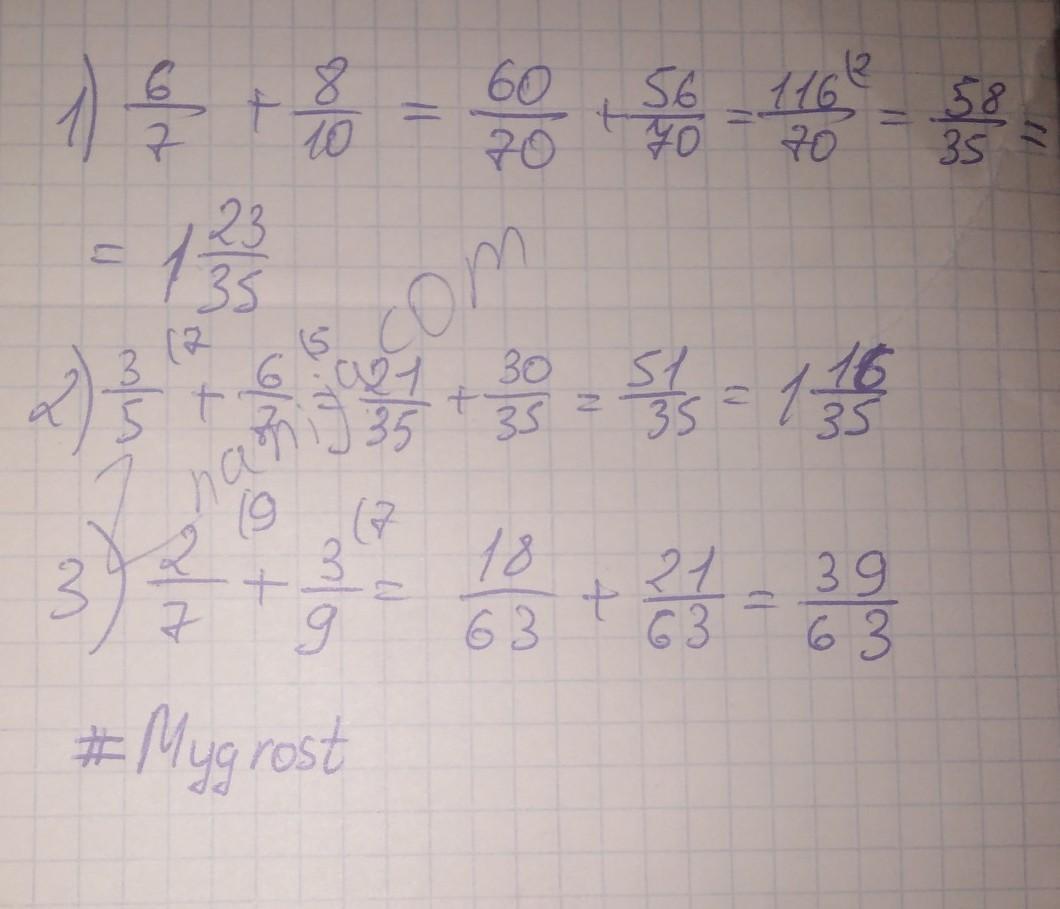 1) 6/7 + 8/10 = 60/70 + 56/70 = 116/70 (2 = 58/35 =
= 1 23/35
2) 3/5 (7 + 6/7 (5 = 21/35 + 30/35 = 51/35 = 1 16/35
3) 2/7 (9 + 3/9 (7 = 18/63 + 21/63 = 39/63
#Mygrost